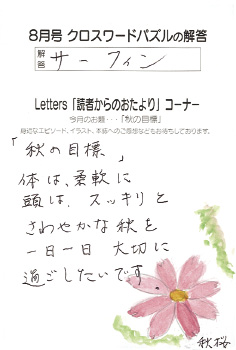 8月号 クロスワードパズルの解答
解答 サーフィン
Letters「読者からのおたより」コーナー
今月のお題・・・「秋の目標」
身近なエピソード、イラスト、本誌へのご感想などもお待ちしております。
「秋の目標」
体は、柔軟に
頭は、スッキリと
さわやかな秋を
一日一日 大切に
過ごしたいです
秋桜